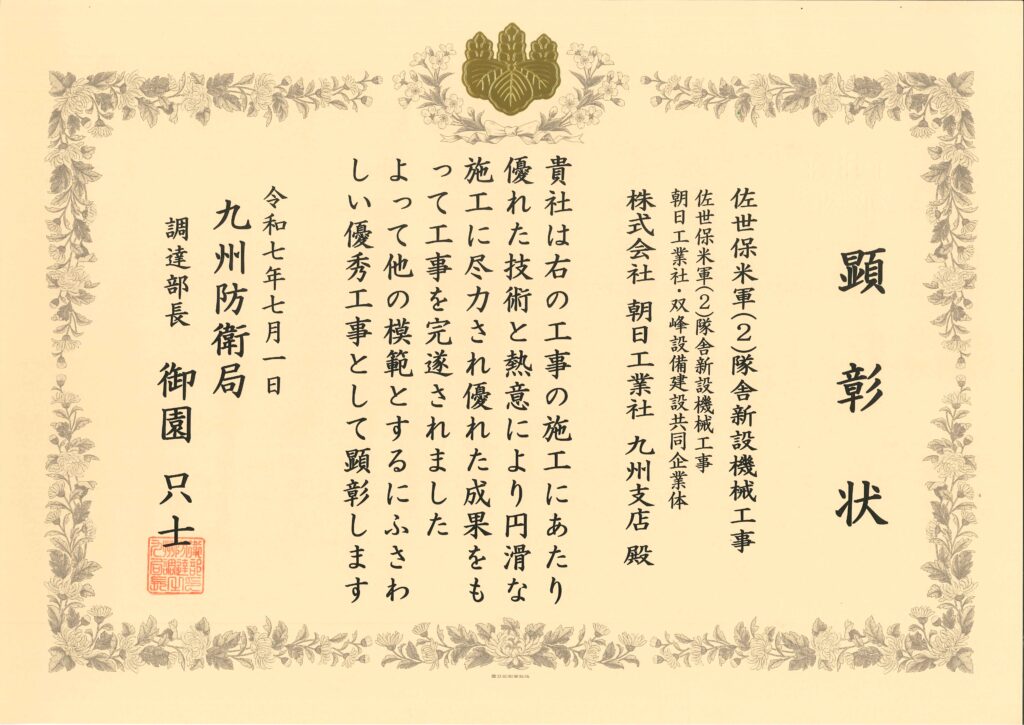 顕彰状
佐世保米軍(2)隊舎新設機械工事
佐世保米軍(2)隊舎新設機械工事
朝日工業社・双峰設備建設共同企業体
株式会社 朝日工業社 九州支店 殿
貴社は右の工事の施工にあたり
優れた技術と熱意により円滑な
施工に尽力され優れた成果をも
って工事を完遂されました
よって他の模範とするにふさわ
しい優秀工事として顕彰します
令和七年七月一日
九州防衛局
調達部長 御園 只士